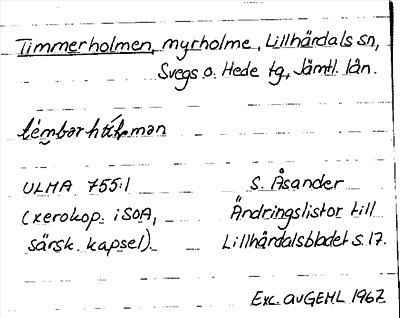 Timmerholmen, myrholme, Lillhärdals sn,
Svegs o. Hede tg, Jämtl. län.
ULMA 755:1
S. Åsander
(xerokop. i SOA,
Ändringslistor till
särsk. kapsel)
Lillhärdalsbladet s. 17.
Exc. av GEHL 1967